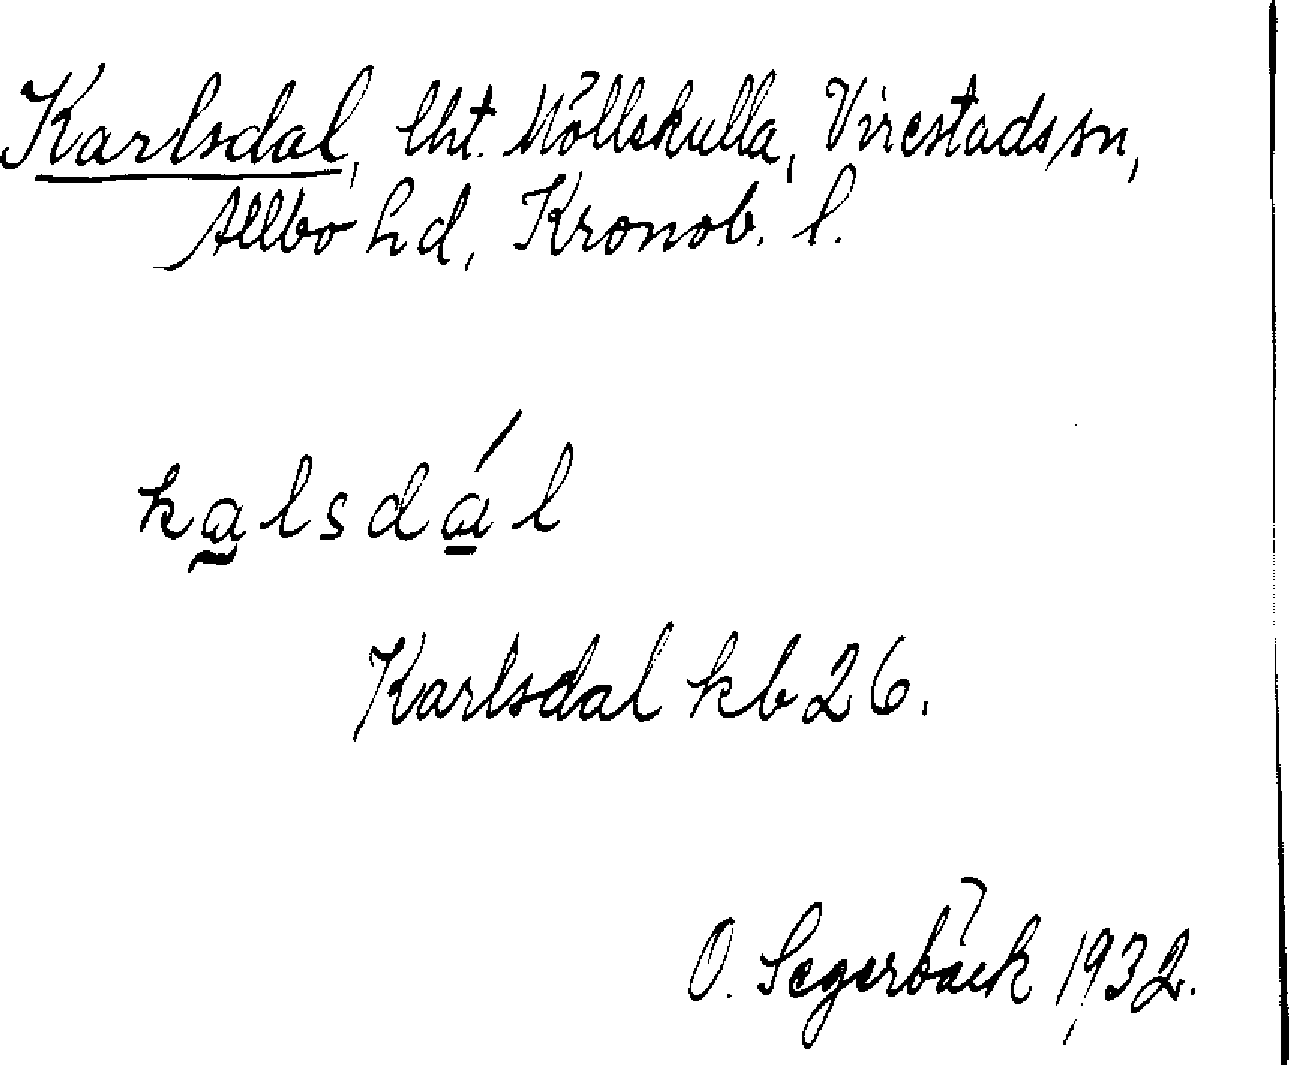 Karlsdal, lht. Möllekulla, Virestads sn,
Allbo hd, Kronob. l.
ka̰lsdá̱l
Karlsdal kb 26.
O. Segerbäck 1932.